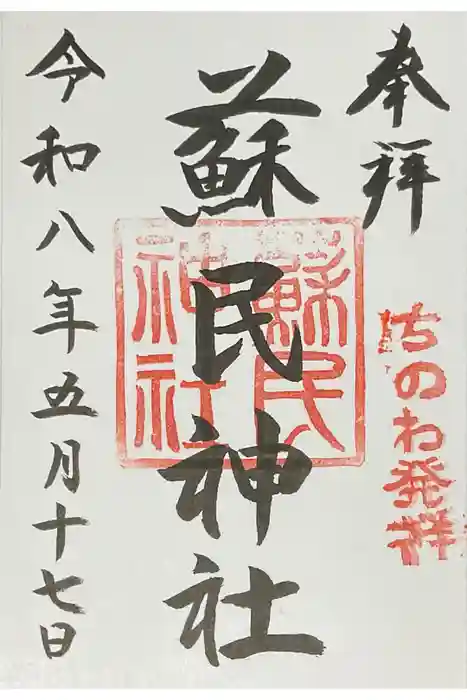 奉拝
ちのわ発祥
蘇民神社
蘇民
神社
令和八年五月十七日